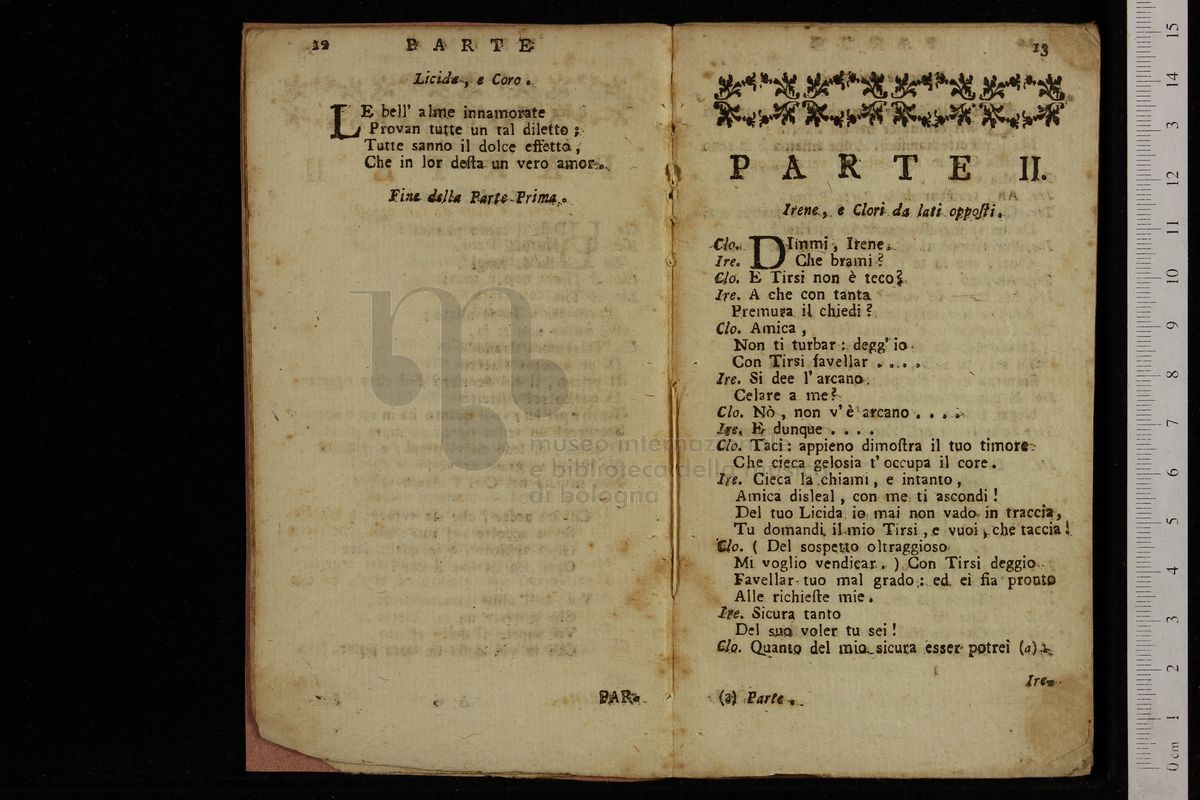 12 PARTE
Licida, e Coro.
LE bell' alme innamorate
Provan tutte un tal diletto;
Tutte sanno il dolce effetto,
Che in lor deſta un vero amor.
Fine della Parte Prima.
PAR-
13
PARTE II.
Irene, e Clori da lati oppoſti.
Clo. DImmi, Irene.
Ire. Che brami?
Clo. E Tirsi non è teco?
Ire. A che con tanta
Premura il chiedi?
Clo. Amica,
Non ti turbar: degg' io
Con Tirsi favellar ....
Ire. Si dee l' arcano
Celare a me?
Clo. Nò, non v' è arcano ....
Ire. E dunque ....
Clo. Taci: appieno dimoſtra il tuo timore
Che cieca gelosia t' occupa il core.
Ire. Cieca la chiami, e intanto,
Amica disleal, con me ti ascondi!
Del tuo Licida io mai non vado in traccia,
Tu domandi il mio Tirsi, e vuoi, che taccia!
Clo. ( Del sospetto oltraggioso
Mi voglio vendicar. ) Con Tirsi deggio
Favellar tuo mal grado: ed ei fia pronto
Alle richieſte mie.
Ire. Sicura tanto
Del suo voler tu sei!
Clo. Quanto del mio sicura esser potrei (a).
Ire.
(a) Parte.
museo internaz
e biblioteca della
di bologna
0 cm 1 2 3 4 5 6 7 8 9 10 11 12 13 14 15